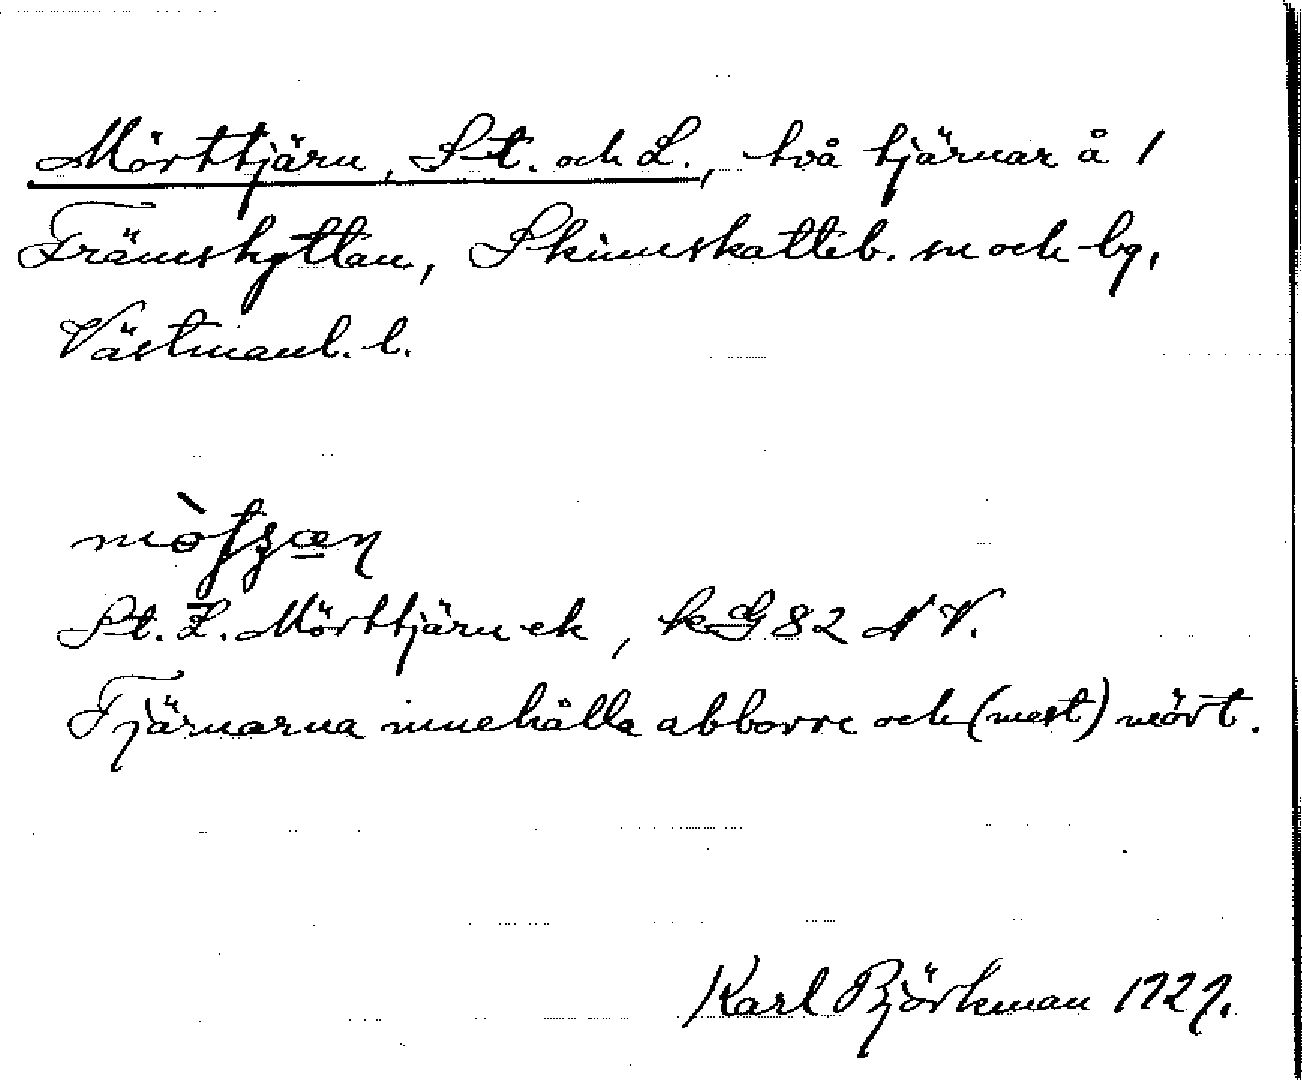 Mörttjärn, St. och L., två tjärnar å 1
Främshyttan, Skinnskatteb. sn och bg,
Västmanl. l.
St. L. Mörttjärn ek, kG 82 NV.
Tjärnarna innehålla abborre och (mest) mört.
Karl Björkman 1927.